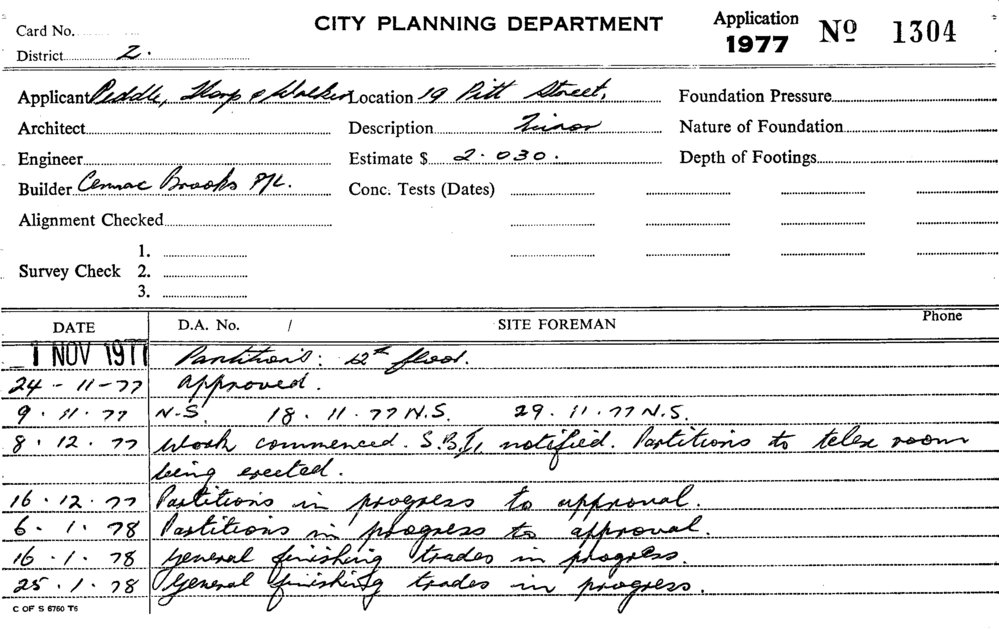 Card No.
CITY PLANNING DEPARTMENT
Application
1977
Nº 1304
District 2.
Applicant Peddle, Thorp & Walker Location 19 Pitt Street, Foundation Pressure
Architect Description Minor Nature of Foundation
Engineer Estimate $ 2.030. Depth of Footings
Builder Cemac Brooks P/L. Conc. Tests (Dates)
Alignment Checked
1.
Survey Check 2.
3.
DATE D.A. No. / SITE FOREMAN Phone
1 NOV 1977 Partitions: 12th floor.
24-11-77 Approved.
9.11.77 N.S. 18.11.77 N.S. 29.11.77 N.S.
8.12.77 Work commenced. S.B.I. notified. Partitions to telex room
being erected.
16.12.77 Partitions in progress to approval.
6.1.78 Partitions in progress to approval.
16.1.78 General finishing trades in progress.
25.1.78 General finishing trades in progress.
C OF S 6760 T6